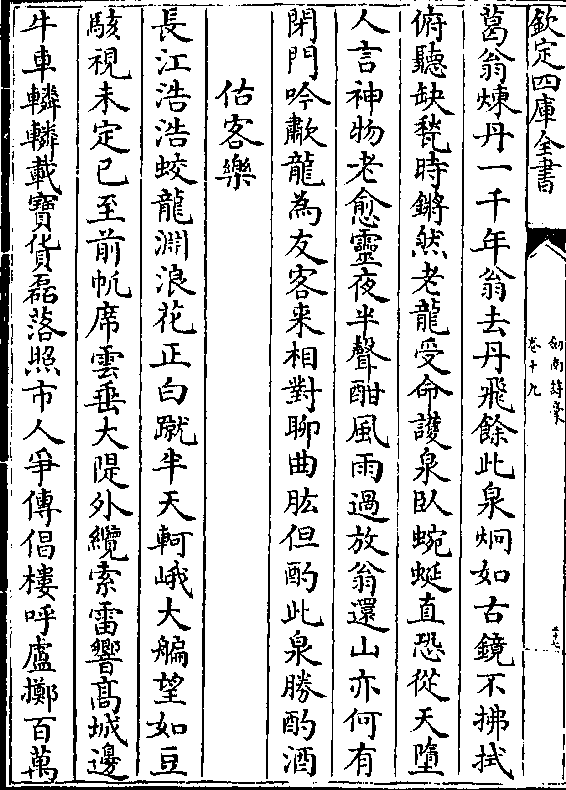 欽定四庫全書
劍南詩稾
卷十九
葛翁煉丹一千年翁去丹飛餘此泉炯如古鏡不拂拭
俯聽缺甃時鏘然老龍受命護泉臥蜿蜒直恐從天墮
人言神物老愈靈夜半聲酣風雨過放翁還山亦何有
閉門吟歗龍為友客来相對聊曲肱但酌此泉勝酌酒
估客樂
長江浩浩蛟龍淵浪花正白蹴半天軻峨大艑望如豆
駭視未定已至前帆席雲垂大隄外纜索雷響髙城邊
牛車轔轔載寶貨磊落照市人爭傳倡樓呼盧擲百萬